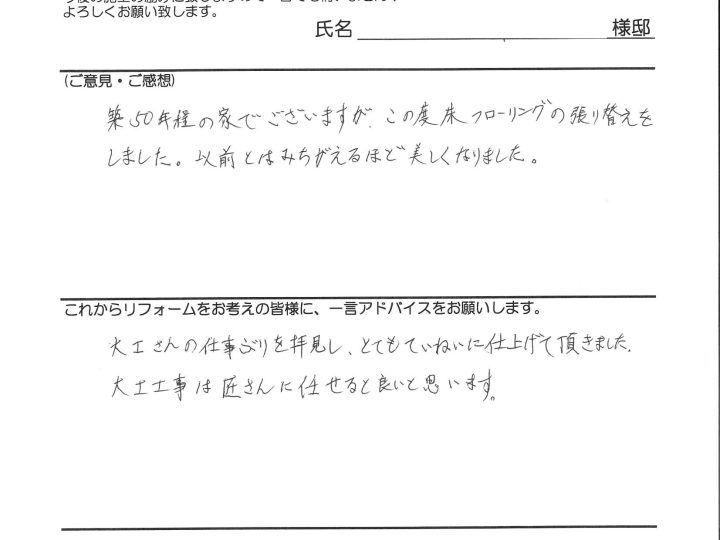 よろしくお願い致します。
氏名 様邸
(ご意見・ご感想)
築50年程の家でございますが、この度床フローリングの張り替えを
しました。以前とはみちがえるほど美しくなりました。
これからリフォームをお考えの皆様に、一言アドバイスをお願いします。
大工さんの仕事ぶりを拝見し、とてもていねいに仕上げて頂きました。
大工工事は匠さんに任せると良いと思います。